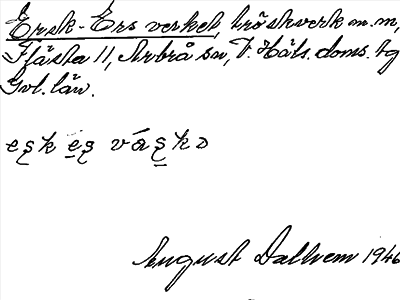 Ersk-Ers verket, tröskverk m.m,
Flästa 11, Arbrå sn, V. Häls. doms. tg
Gvl. län.
August Dalhem 1946